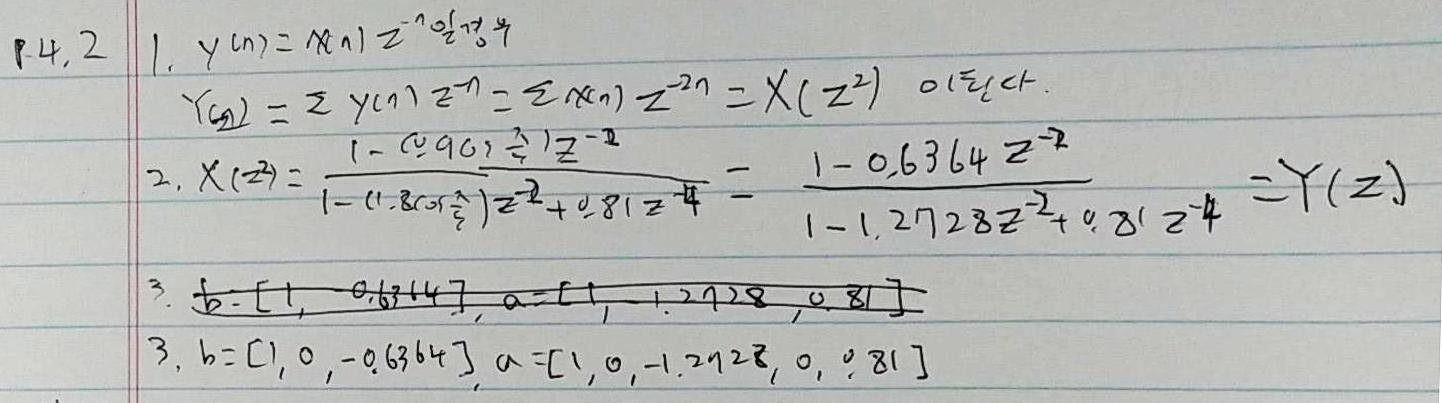 P.4.2 1. y(n) = x(n) z^-n 일 경우
Y(z) = Σ y(n) z^-n = Σ x(n) z^-2n = X(z²) 이 된다.
2. X(z²) = (1 - (0.9cos π/4) z^-2) / (1 - (1.8cos π/4) z^-2 + 0.81 z^-4) = (1 - 0.6364 z^-2) / (1 - 1.2728 z^-2 + 0.81 z^-4) = Y(z)
3. b = [1, -0.6364], a = [1, -1.2728, 0.81]
3. b = [1, 0, -0.6364], a = [1, 0, -1.2728, 0, 0.81]